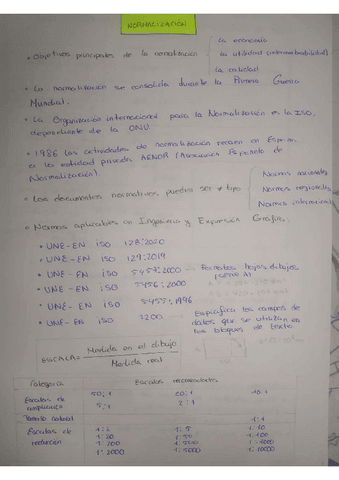 NORMALIZACIÓN
• Objetivos principales de la normalización
La economía
La utilidad (intercambiabilidad)
La calidad
• La normalización se consolida durante la Primera Guerra
Mundial.
• La Organización internacional para la Normalización es la ISO,
dependiente de la ONU.
• 1986 las actividades de normalización recaen en España
a la entidad privada AENOR (Asociación Española de
Normalización)
• Los documentos normativos pueden ser ≠ tipo
Normas nacionales
Normas regionales
Normas internacional
• Normas aplicables en Ingeniería y Expresión Gráfica.
• UNE-EN ISO 128:2020
• UNE-EN ISO 129:2019
• UNE-EN ISO 5457:2000 — Formatos hojas dibujos
• UNE-EN ISO 5456:2000
• UNE-EN ISO 5455:1996
• UNE-EN ISO 7200 — Especifica los campos de
datos que se utilizan en
los bloques de texto
ESCALA = Medida en el dibujo
Medida real
Categoría Escalas recomendadas
Escalas de 50:1 20:1 10:1
ampliación 5:1 2:1
Tamaño natural 1:1
Escalas de 1:2 1:5 1:10
reducción 1:20 1:50 1:100
1:200 1:500 1:1000
1:2000 1:5000 1:10000